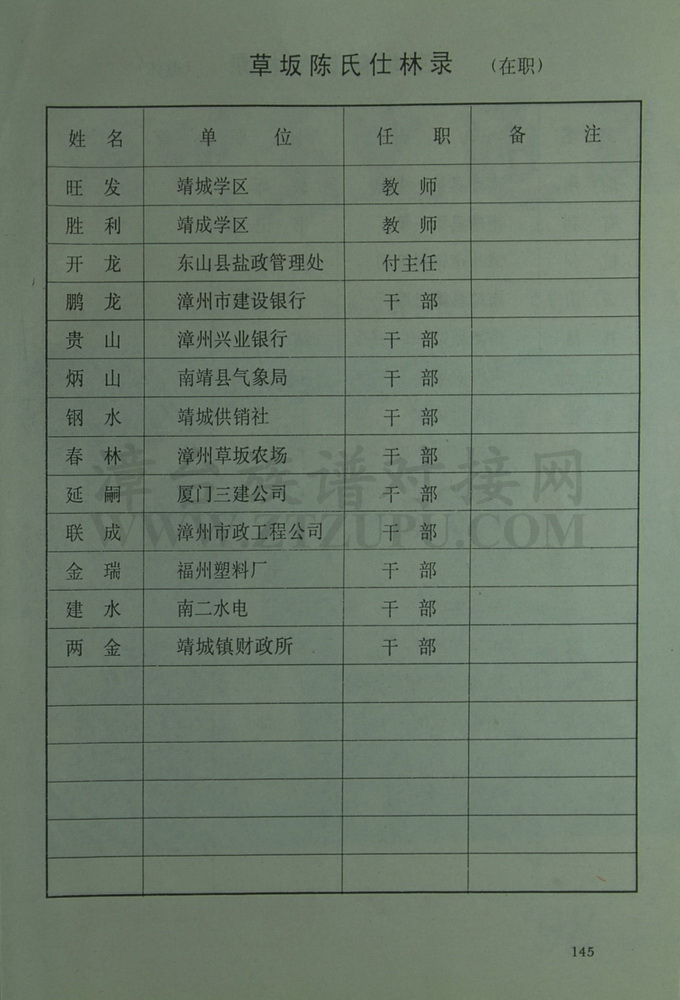 草坂陈氏仕林录 (在职)
姓名 单位 任职 备注
旺发 靖城学区 教师
胜利 靖成学区 教师
开龙 东山县盐政管理处 付主任
鹏龙 漳州市建设银行 干部
贵山 漳州兴业银行 干部
炳山 南靖县气象局 干部
钢水 靖城供销社 干部
春林 漳州草坂农场 干部
延嗣 厦门三建公司 干部
联成 漳州市政工程公司 干部
金瑞 福州塑料厂 干部
建水 南二水电 干部
两金 靖城镇财政所 干部
漳台族谱对接网
WWW.ZTZUPU.COM
145